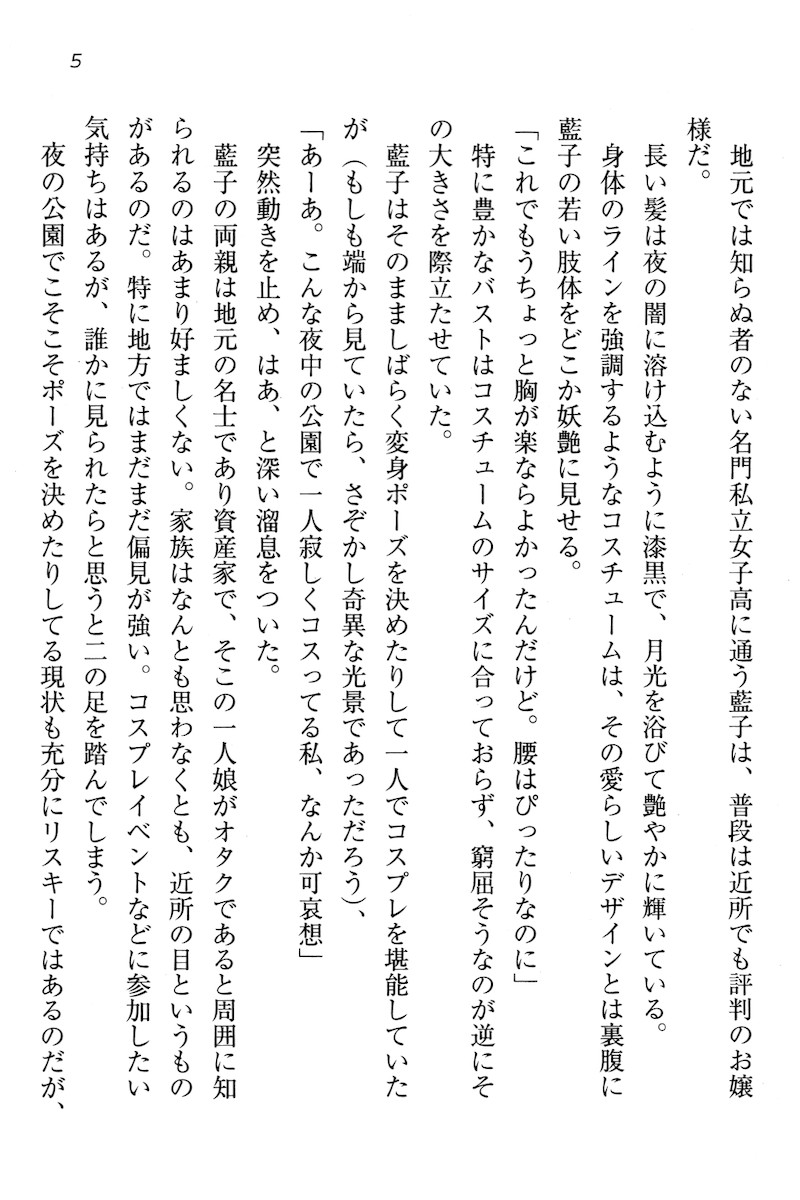 5
地元では知らぬ者のない名門私立女子高に通う藍子は、普段は近所でも評判のお嬢
様だ。
長い髪は夜の闇に溶け込むように漆黒で、月光を浴びて艶やかに輝いている。
身体のラインを強調するようなコスチュームは、その愛らしいデザインとは裏腹に
藍子の若い肢体をどこか妖艶に見せる。
「これでもうちょっと胸が楽ならよかったんだけど。腰はぴったりなのに」
特に豊かなバストはコスチュームのサイズに合っておらず、窮屈そうなのが逆にそ
の大きさを際立たせていた。
藍子はそのまましばらく変身ポーズを決めたりして一人でコスプレを堪能していた
が（もしも端から見ていたら、さぞかし奇異な光景であっただろう）、
「あーあ。こんな夜中の公園で一人寂しくコスってる私、なんか可哀想」
突然動きを止め、はあ、と深い溜息をついた。
藍子の両親は地元の名士であり資産家で、そこの一人娘がオタクであると周囲に知
られるのはあまり好ましくない。家族はなんとも思わなくとも、近所の目というもの
があるのだ。特に地方ではまだまだ偏見が強い。コスプレイベントなどに参加したい
気持ちはあるが、誰かに見られたらと思うと二の足を踏んでしまう。
夜の公園でこそこそポーズを決めたりしてる現状も充分にリスキーではあるのだが、